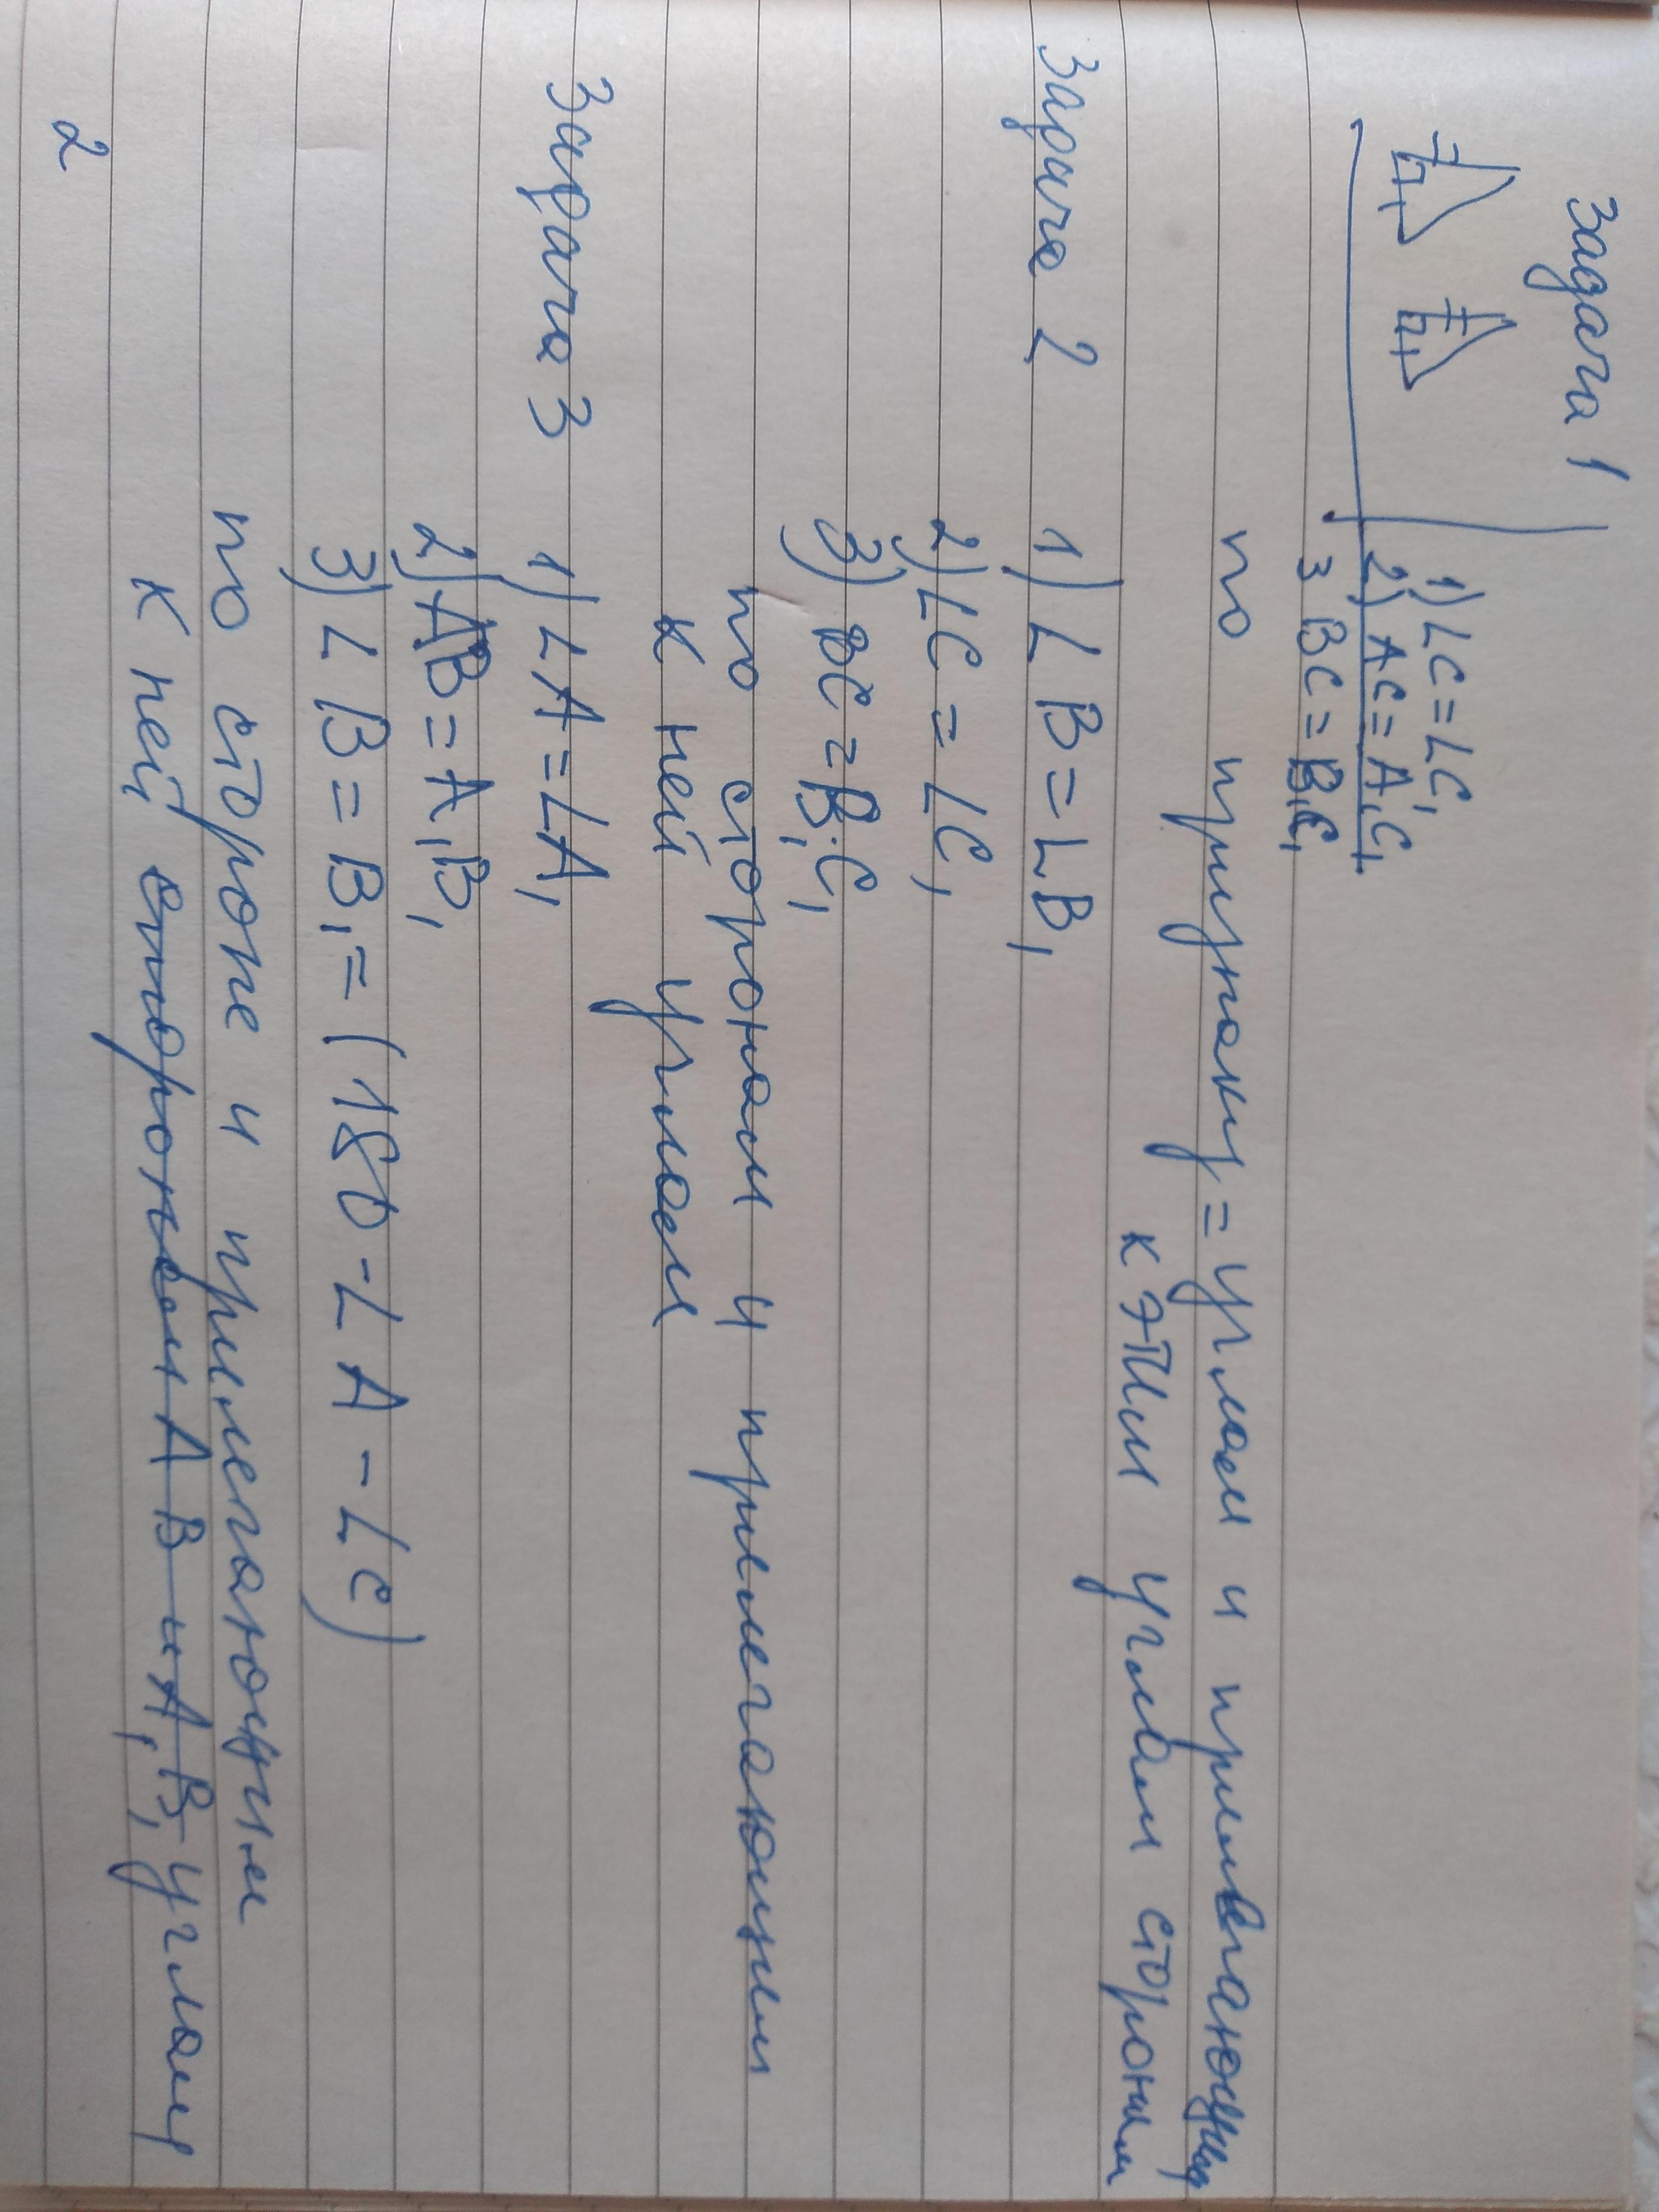 Задача 1
1) ∠C = ∠C₁
2) AC = A₁C₁
3 BC = B₁C₁
по признаку = углам и прилегающим
к этим углам сторонам
Задача 2 1) ∠B = ∠B₁
2) ∠C = ∠C₁
3) BC = B₁C₁
по сторонам и прилегающим
к ней углам
Задача 3 1) ∠A = ∠A₁
2) AB = A₁B₁
3) ∠B = B₁ = (180 - ∠A - ∠C)
по стороне и прилегающим
к ней сторонам AB и A₁B₁ углам
2